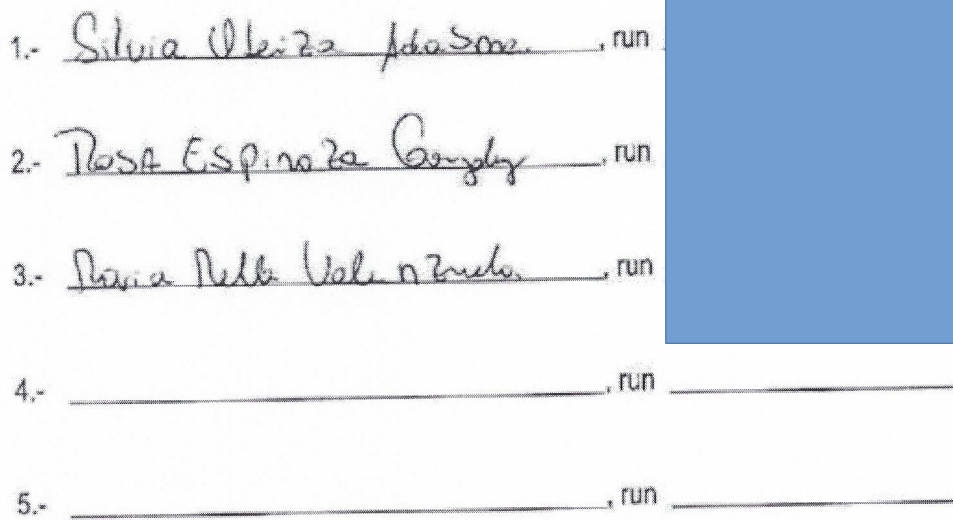 1.- Silvia Oleiza Adasme , run
2.- Rosa Espinoza Gonzalez , run
3.- Maria Mella Valenzuela , run
4.- , run
5.- , run